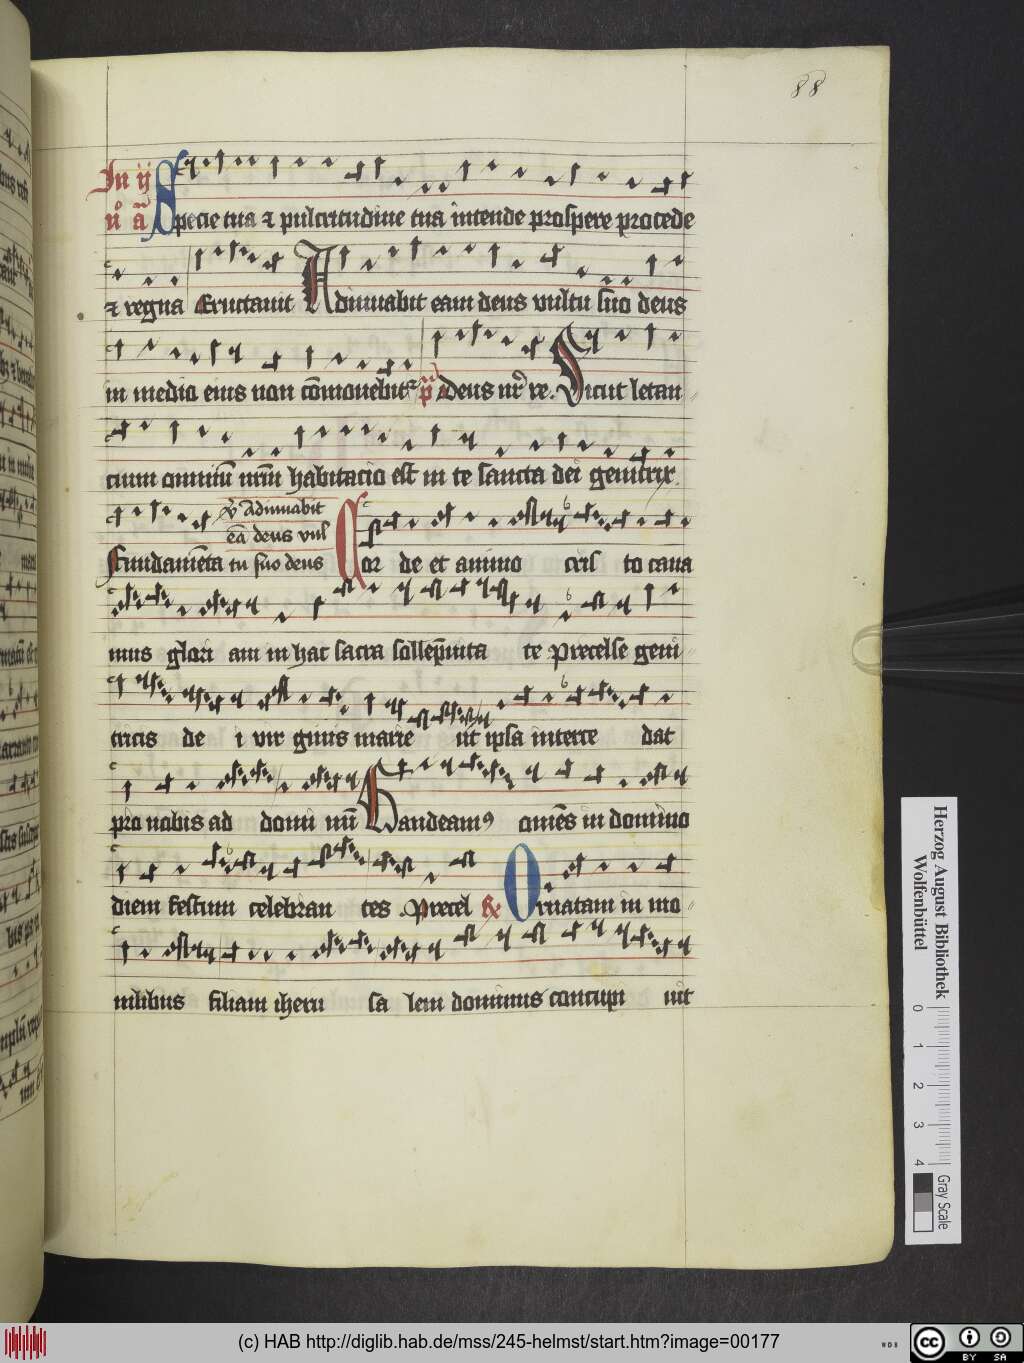 88
In ij
nͦ a᷃ Specie tua ⁊ pulcritudine tua intende prospere procede
⁊ regna Eructauit Adiuuabit eam deus vultu suo deus
in medio eius non co᷃mouebitᷣ p᷃s Deus nr᷃ re. Sicut letan
cium omniu᷃ nr᷃m habitacio est in te sancta dei genitrix
v᷃ Adiuuabit
ea᷃ deus vul
Fundame᷃ta tu suo deus Cor de et animo cris to cana
mus glori am in hac sacra solle᷃pnita te precelse geni
tricis de i vir ginis marie ut ipsa interce dat
pro nobis ad domi nu᷃ Gaudeamꝰ om᷃es in domino
diem festum celebran tes Precel ℟ Ornatam in mo
nilibus filiam iheru sa lem dominus concupi uit
Herzog August Bibliothek
Wolfenbüttel
0 1 2 3 4
Gray Scale
(c) HAB http://diglib.hab.de/mss/245-helmst/start.htm?image=00177
WDB
cc BY SA